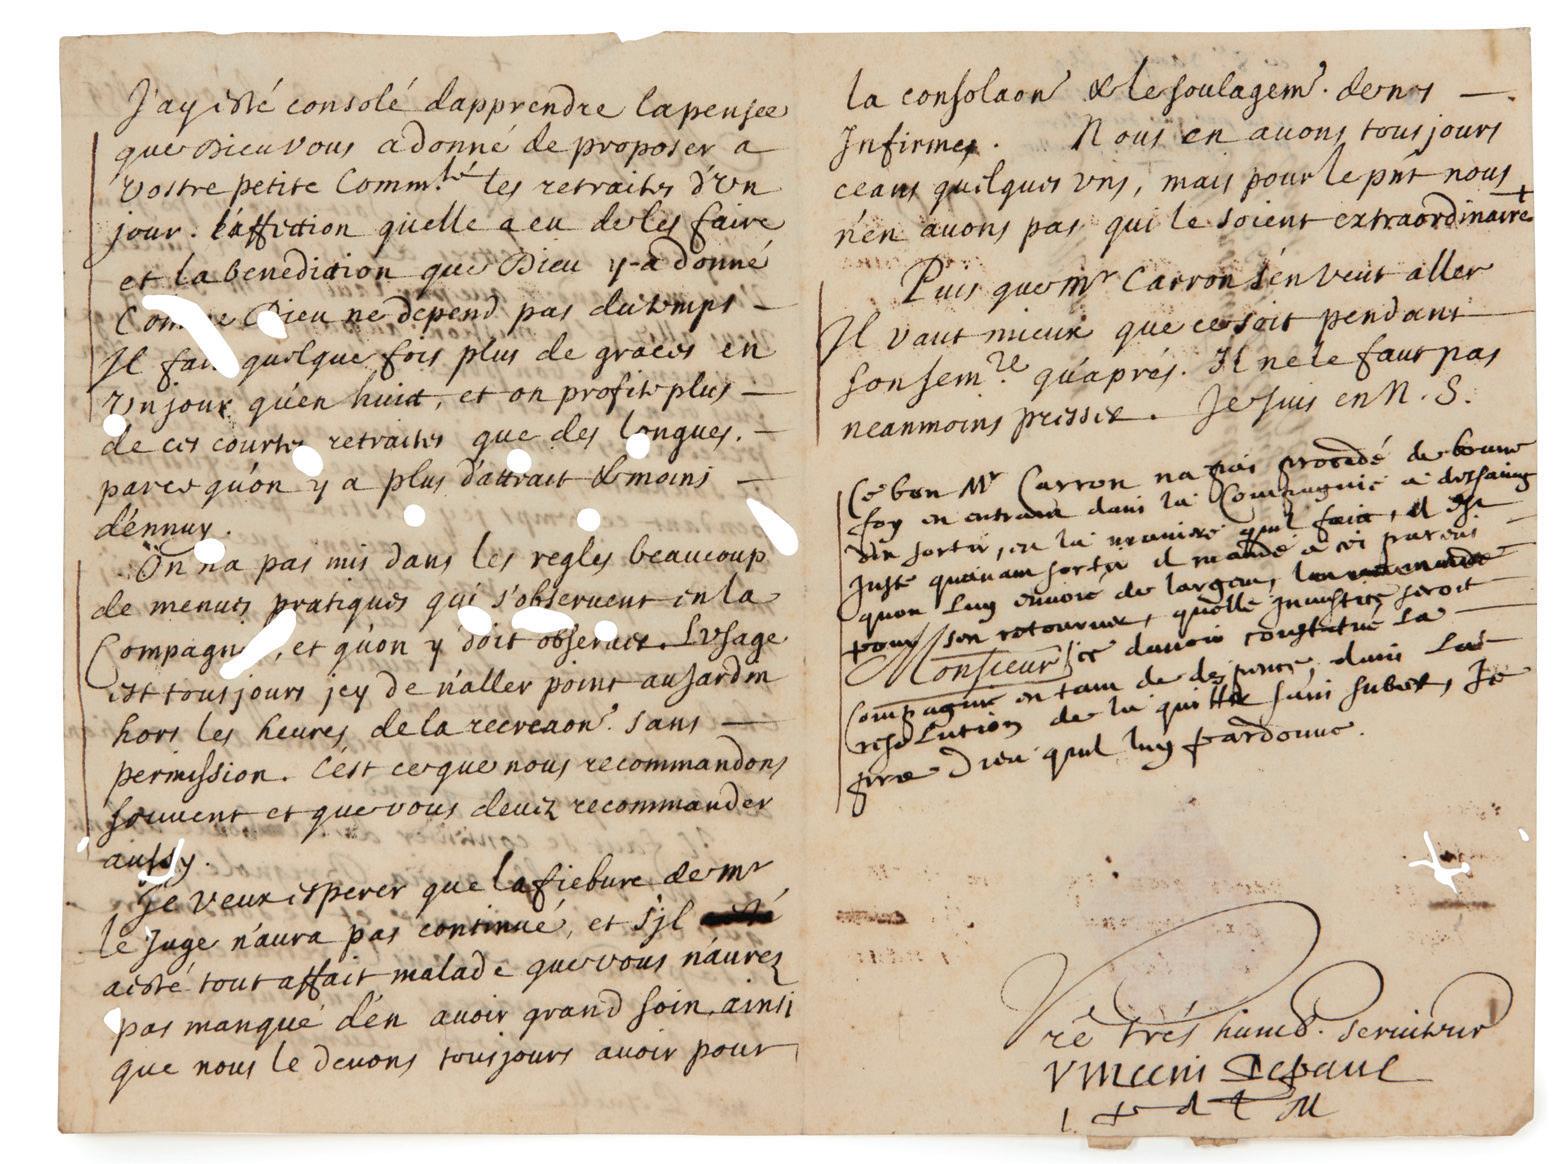 J'ay esté consolé d'apprendre la pensee
que Dieu vous a donné de proposer a
vostre petite Comm.té les retraites d'vn
jour. l'affection qu'elle a eu de les faire
et la benediction que Dieu y-a donné
Comme Dieu ne dépend pas du temps —
Il fait quelque fois plus de graces en
vn jour qu'en huict, et on profite plus —
de ces courtes retraites que des longues. —
parce qu'on y a plus d'attrait & moins —
d'ennuy.
On n'a pas mis dans les regles beaucoup
de menues pratiques qui s'obseruent en la
Compagnie, et qu'on y doit obseruer. L'vsage
est tousjours jcy de n'aller point au Jardin
hors les heures de la recreaon. sans —
permission. C'est ce que nous recommandons
souuent et que vous deuez recommander
aussy.
Je veux esperer que la fiebure de mr
le Juge n'aura pas continué, et s'jl
a esté tout affait malade que vous n'aurez
pas manqué d'en auoir grand soin, ainsi
que nous le deuons tousjours auoir pour
la consolaon & le soulagemt. de nos —.
Infirmes. Nous en auons tousjours
ceans quelques vns, mais pour le pñt nous
n'en auons pas qui le soient extraordinairt
Puis que mr Carron s'en veut aller
Il vaut mieux que ce soit pendant
son sem.re qu'aprés. Il ne le faut pas
neanmoins presser. Je suis en N. S.
Ce bon Mr Carron na pas procedé de bonne
foy en entrant dans la Compagnie a dessaing
den sortir, en la maniere quil fait, il est
Juste quauant sortir il mande a ses parens
quon luy enuoie de largent,
pour sen retourner, quelle injustice seroit
Monsieur ce dauoir constitué la
Compagnie en tant de despence, dans la
resolution de la quitter sans subiet, Je
prie Dieu quil luy pardonne.
Vre trés humb. seruiteur
Vincent Depaul
i. p d l M